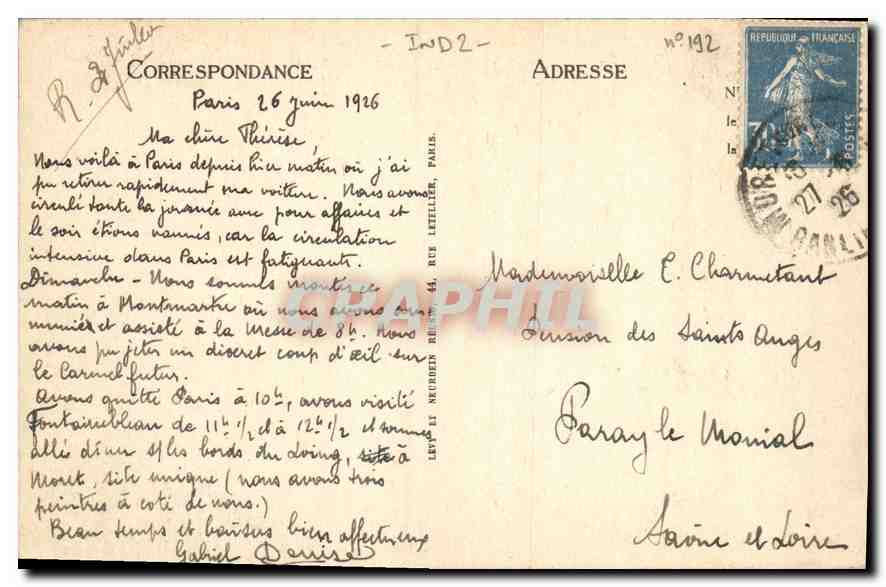 - IND2 -
n° 192
CORRESPONDANCE
Paris 26 Juin 1926
Ma chère Thérèse,
Nous voilà à Paris depuis hier matin où j'ai
pu retirer rapidement ma voiture. Nous avons
circulé toute la journée avec pour affaires et
le soir étions vannés, car la circulation
intensive dans Paris est fatiguante.
Dimanche - Nous sommes montés ce
matin à Montmartre où nous avons com
munié et assisté à la Messe de 8h. Nous
avons pu jeter un discret coup d'œil sur
le Carmel futur.
Avons quitté Paris à 10h, avons visité
Fontainebleau de 11h 1/2 et à 12h 1/2 et sommes
allé dîner s/ les bords du Loing, site à
Moret, site unique (nous avons trois
peintres à coté de nous.)
Beau temps et baisers bien affectueux
Gabriel Denise
LÉVY ET NEURDEIN RÉUNIS, 44, RUE LETELLIER, PARIS.
ADRESSE
REPUBLIQUE FRANÇAISE
POSTES
27
26
Mademoiselle E. Charmetant
Pension des Saints Anges
Paray le Monial
Saône et Loire
CPAPHIL